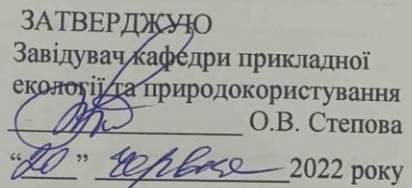 ЗАТВЕРДЖУЮ
Завідувач кафедри прикладної
екології та природокористування
О.В. Степова
“20” червня 2022 року